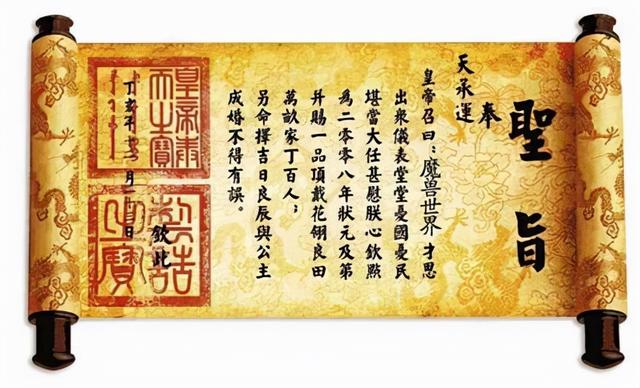 聖旨
奉
天承運
皇帝召曰：魔兽世界才思
出衆儀表堂堂憂國憂民
堪當大任甚慰朕心欽點
為二零零八年狀元及第
并賜一品頂戴花翎良田
萬畝家丁百人；
另命擇吉日良辰與公主
成婚不得有誤。
欽此
丁亥年 月一日
皇帝奉
天之寶
制誥
之寶